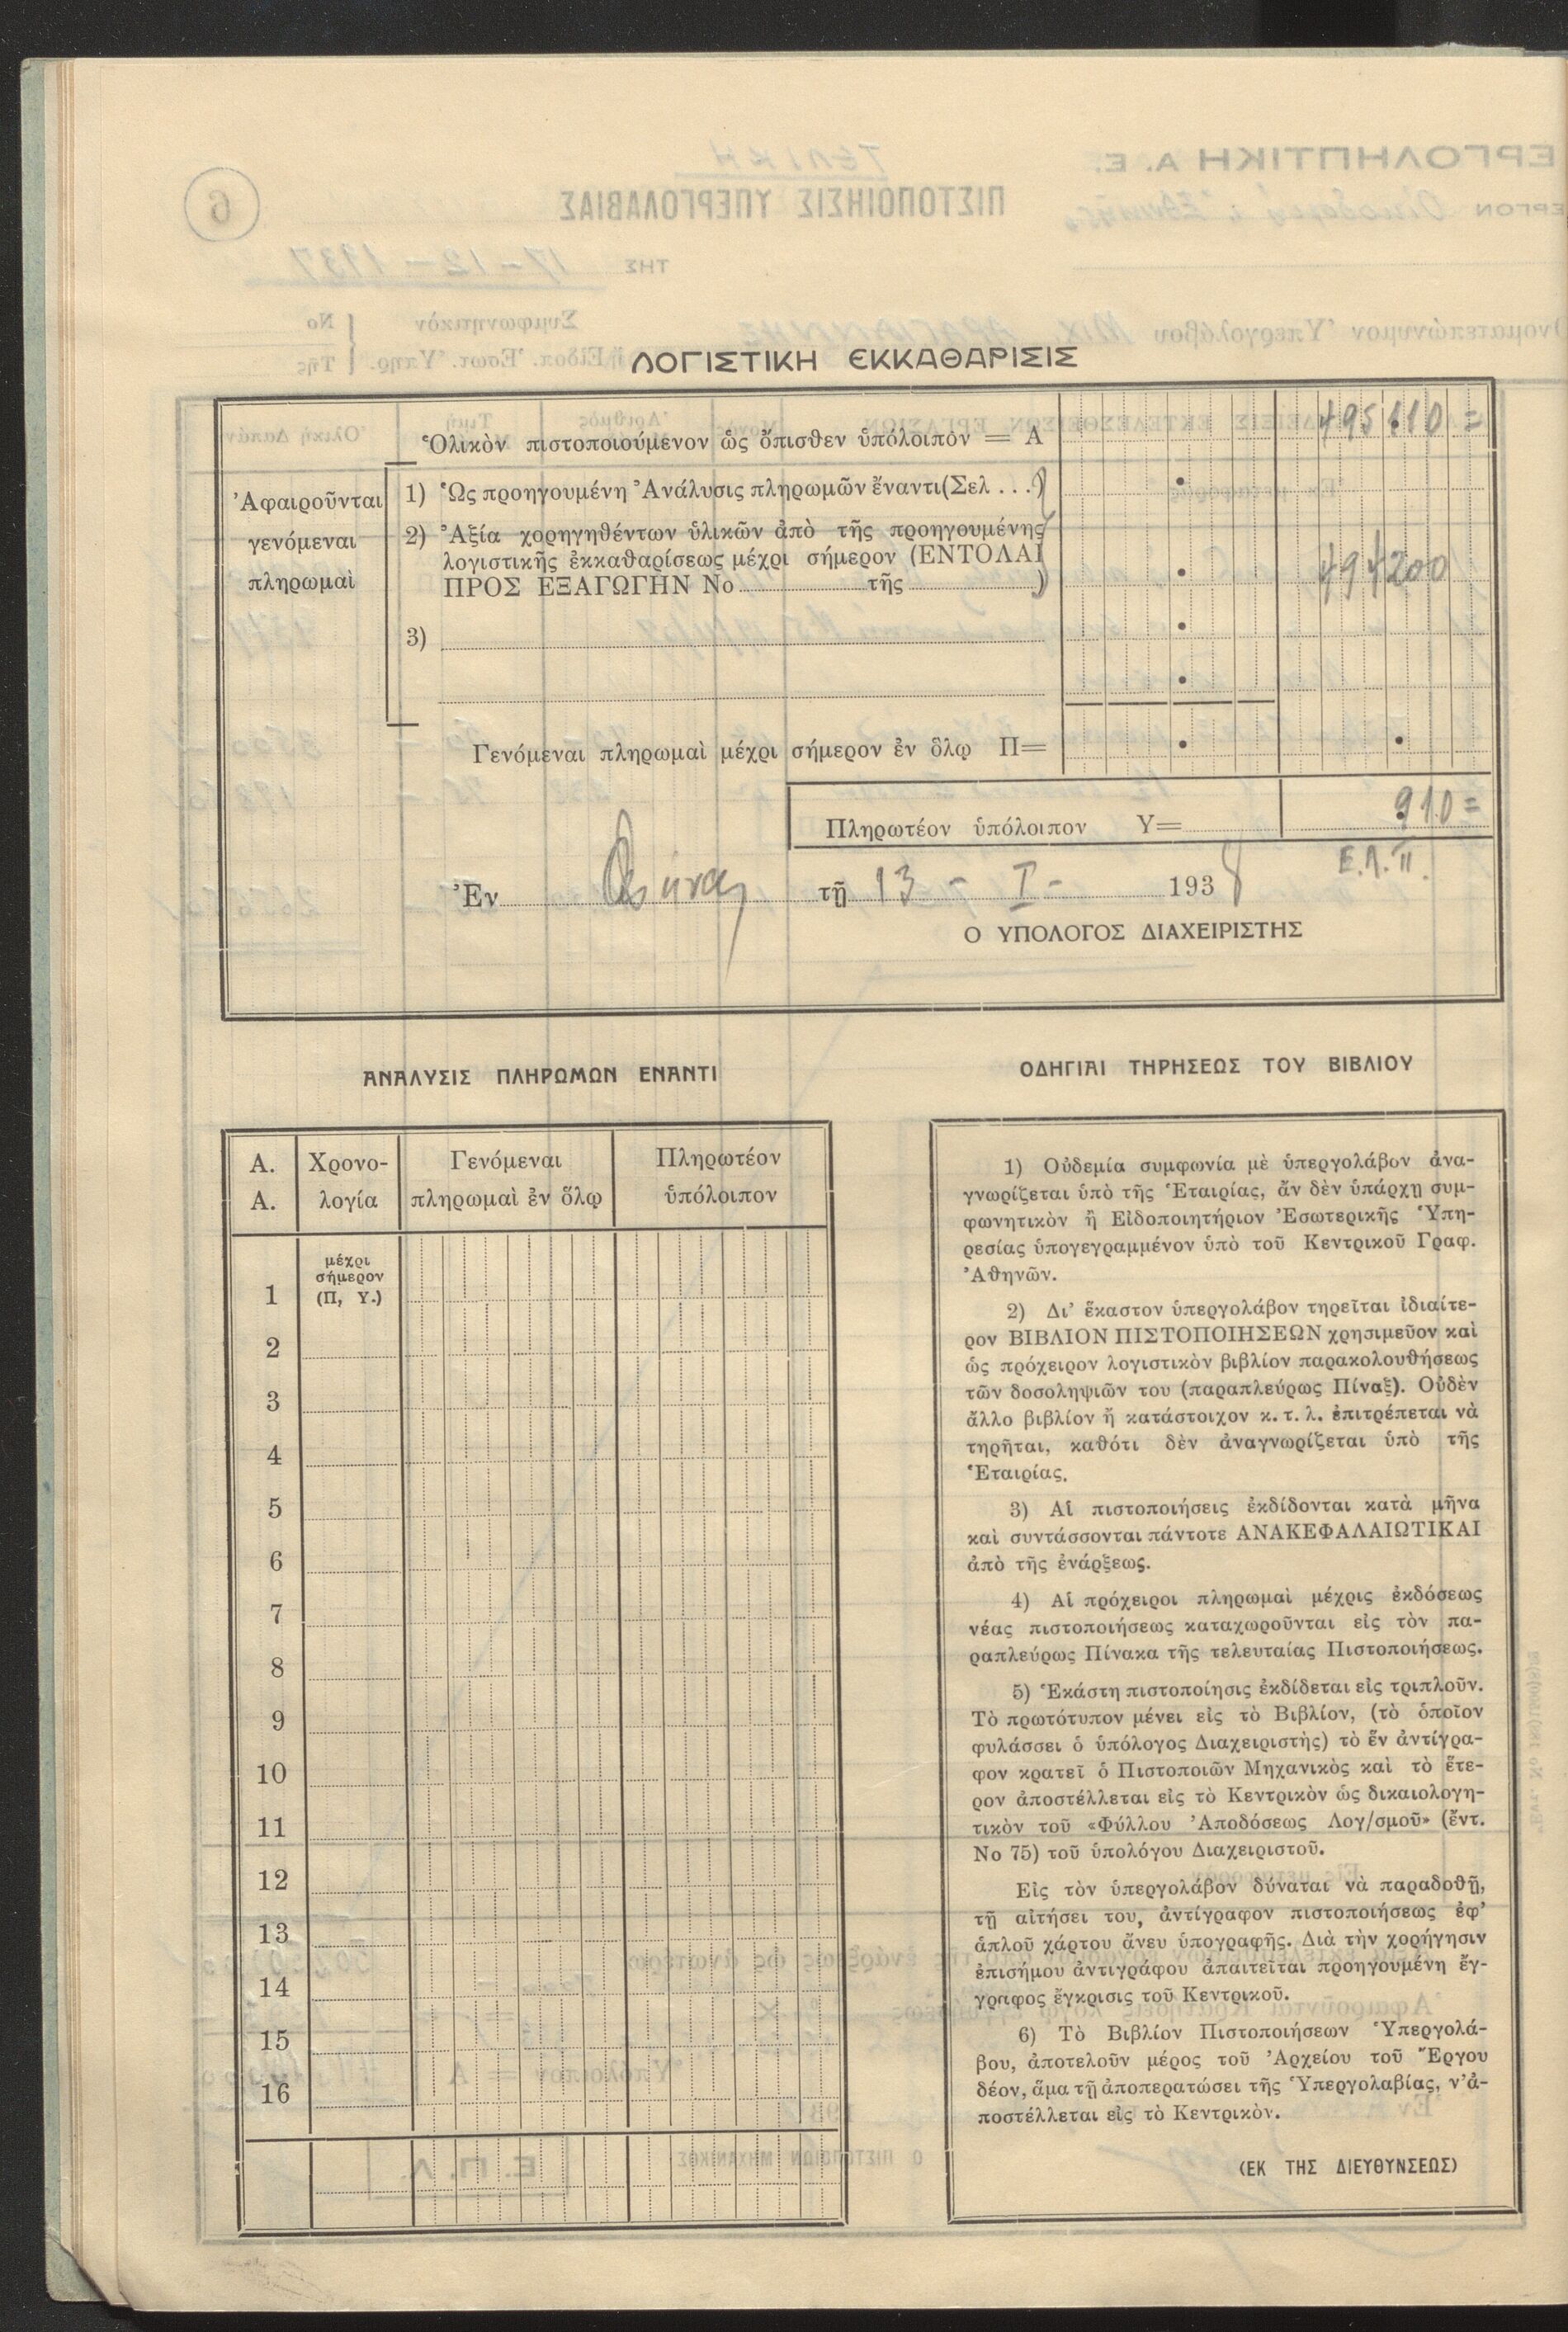 ΛΟΓΙΣΤΙΚΗ ΕΚΚΑΘΑΡΙΣΙΣ
Ὁλικὸν πιστοποιούμενον ὡς ὄπισθεν ὑπόλοιπόν = Α 495.110 =
Ἀφαιροῦνται
γενόμεναι
πληρωμαὶ
1) Ὡς προηγουμένη Ἀνάλυσις πληρωμῶν ἔναντι (Σελ . . .)
2) Ἀξία χορηγηθέντων ὑλικῶν ἀπὸ τῆς προηγουμένης
λογιστικῆς ἐκκαθαρίσεως μέχρι σήμερον (ΕΝΤΟΛΑΙ
ΠΡΟΣ ΕΞΑΓΩΓΗΝ Νο ........ τῆς ........) 494200
3)
Γενόμεναι πληρωμαὶ μέχρι σήμερον ἐν ὅλῳ Π=
Πληρωτέον ὑπόλοιπον Υ= 910 =
Ε.Λ.Π.
Ἐν Ἀθήναις τῇ 13 - I - 1938
Ο ΥΠΟΛΟΓΟΣ ΔΙΑΧΕΙΡΙΣΤΗΣ
ΑΝΑΛΥΣΙΣ ΠΛΗΡΩΜΩΝ ΕΝΑΝΤΙ
Α. Α.
Χρονολογία
Γενόμεναι πληρωμαὶ ἐν ὅλῳ
Πληρωτέον ὑπόλοιπον
μέχρι
σήμερον
1 (Π, Υ.)
2
3
4
5
6
7
8
9
10
11
12
13
14
15
16
ΟΔΗΓΙΑΙ ΤΗΡΗΣΕΩΣ ΤΟΥ ΒΙΒΛΙΟΥ
1) Οὐδεμία συμφωνία μὲ ὑπεργολάβον ἀνα-
γνωρίζεται ὑπὸ τῆς Ἑταιρίας, ἂν δὲν ὑπάρχῃ συμ-
φωνητικὸν ἢ Εἰδοποιητήριον Ἐσωτερικῆς Ὑπη-
ρεσίας ὑπογεγραμμένον ὑπὸ τοῦ Κεντρικοῦ Γραφ.
Ἀθηνῶν.
2) Δι’ ἕκαστον ὑπεργολάβον τηρεῖται ἰδιαίτε-
ρον ΒΙΒΛΙΟΝ ΠΙΣΤΟΠΟΙΗΣΕΩΝ χρησιμεῦον καὶ
ὡς πρόχειρον λογιστικὸν βιβλίον παρακολουθήσεως
τῶν δοσοληψιῶν του (παραπλεύρως Πίναξ). Οὐδὲν
ἄλλο βιβλίον ἢ κατάστοιχον κ. τ. λ. ἐπιτρέπεται νὰ
τηρῆται, καθότι δὲν ἀναγνωρίζεται ὑπὸ τῆς
Ἑταιρίας.
3) Αἱ πιστοποιήσεις ἐκδίδονται κατὰ μῆνα
καὶ συντάσσονται πάντοτε ΑΝΑΚΕΦΑΛΑΙΩΤΙΚΑΙ
ἀπὸ τῆς ἐνάρξεως.
4) Αἱ πρόχειροι πληρωμαὶ μέχρις ἐκδόσεως
νέας πιστοποιήσεως καταχωροῦνται εἰς τὸν πα-
ραπλεύρως Πίνακα τῆς τελευταίας Πιστοποιήσεως.
5) Ἑκάστη πιστοποίησις ἐκδίδεται εἰς τριπλοῦν.
Τὸ πρωτότυπον μένει εἰς τὸ Βιβλίον, (τὸ ὁποῖον
φυλάσσει ὁ ὑπόλογος Διαχειριστὴς) τὸ ἓν ἀντίγρα-
φον κρατεῖ ὁ Πιστοποιῶν Μηχανικὸς καὶ τὸ ἕτε-
ρον ἀποστέλλεται εἰς τὸ Κεντρικὸν ὡς δικαιολογη-
τικὸν τοῦ «Φύλλου Ἀποδόσεως Λογ/σμοῦ» (ἔντ.
Νο 75) τοῦ ὑπολόγου Διαχειριστοῦ.
Εἰς τὸν ὑπεργολάβον δύναται νὰ παραδοθῇ,
τῇ αἰτήσει του, ἀντίγραφον πιστοποιήσεως ἐφ’
ἁπλοῦ χάρτου ἄνευ ὑπογραφῆς. Διὰ τὴν χορήγησιν
ἐπισήμου ἀντιγράφου ἀπαιτεῖται προηγουμένη ἔγ-
γραφος ἔγκρισις τοῦ Κεντρικοῦ.
6) Τὸ Βιβλίον Πιστοποιήσεων Ὑπεργολά-
βου, ἀποτελοῦν μέρος τοῦ Ἀρχείου τοῦ Ἔργου
δέον, ἅμα τῇ ἀποπερατώσει τῆς Ὑπεργολαβίας, ν’ἀ-
ποστέλλεται εἰς τὸ Κεντρικὸν.
(ΕΚ ΤΗΣ ΔΙΕΥΘΥΝΣΕΩΣ)